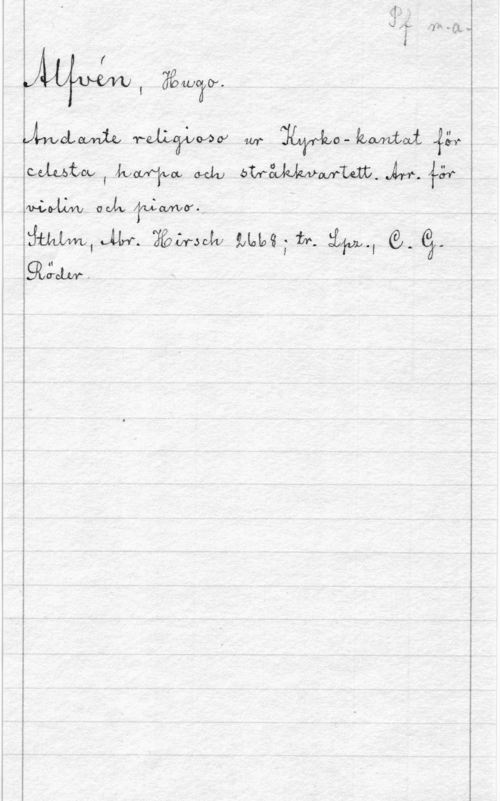 Pf m.a.
Alfvén, Hugo.
Andante religioso ur Kyrko-kantat för
celesta, harpa och stråkkvartett. Arr. för
violin och piano.
Sthlm, Abr. Hirsch 2668; tr. Lpz., C. G.
Röder.